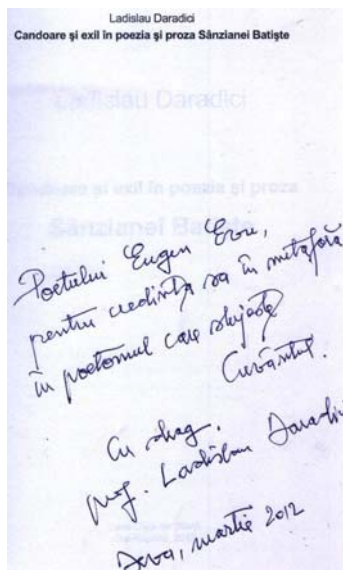 Ladislau Daradici
Candoare și exil în poezia și proza Sânzianei Batiște
Ladislau Daradici
Candoare și exil în poezia și proza
Sânzianei Batiște
Poetului Eugen Evu,
pentru credința sa în metaforă
în poetomul care slujește
Cuvântul.
Cu drag,
prof. Ladislau Daradici
Deva, martie 2012